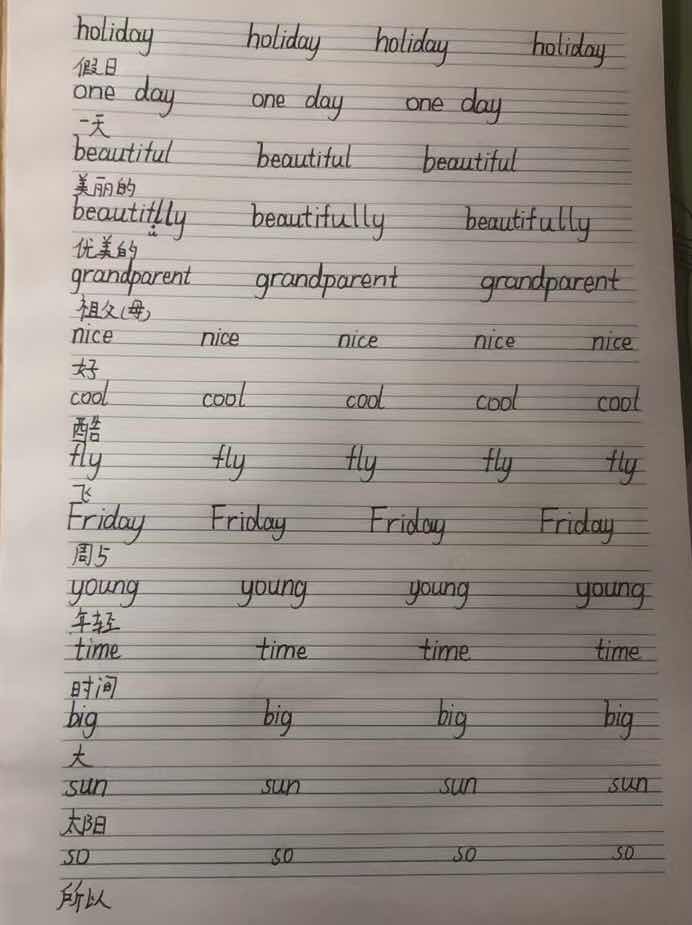 holiday holiday holiday holiday
假日
one day one day one day
一天
beautiful beautiful beautiful
美丽的
beautitlly beautifully beautifully
优美的
grandparent grandparent grandparent
祖父(母)
nice nice nice nice nice
好
cool cool cool cool cool
酷
fly fly fly fly fly
飞
Friday Friday Friday Friday
周5
young young young young
年轻
time time time time
时间
big big big big
大
sun sun sun sun
太阳
so so so so
所以